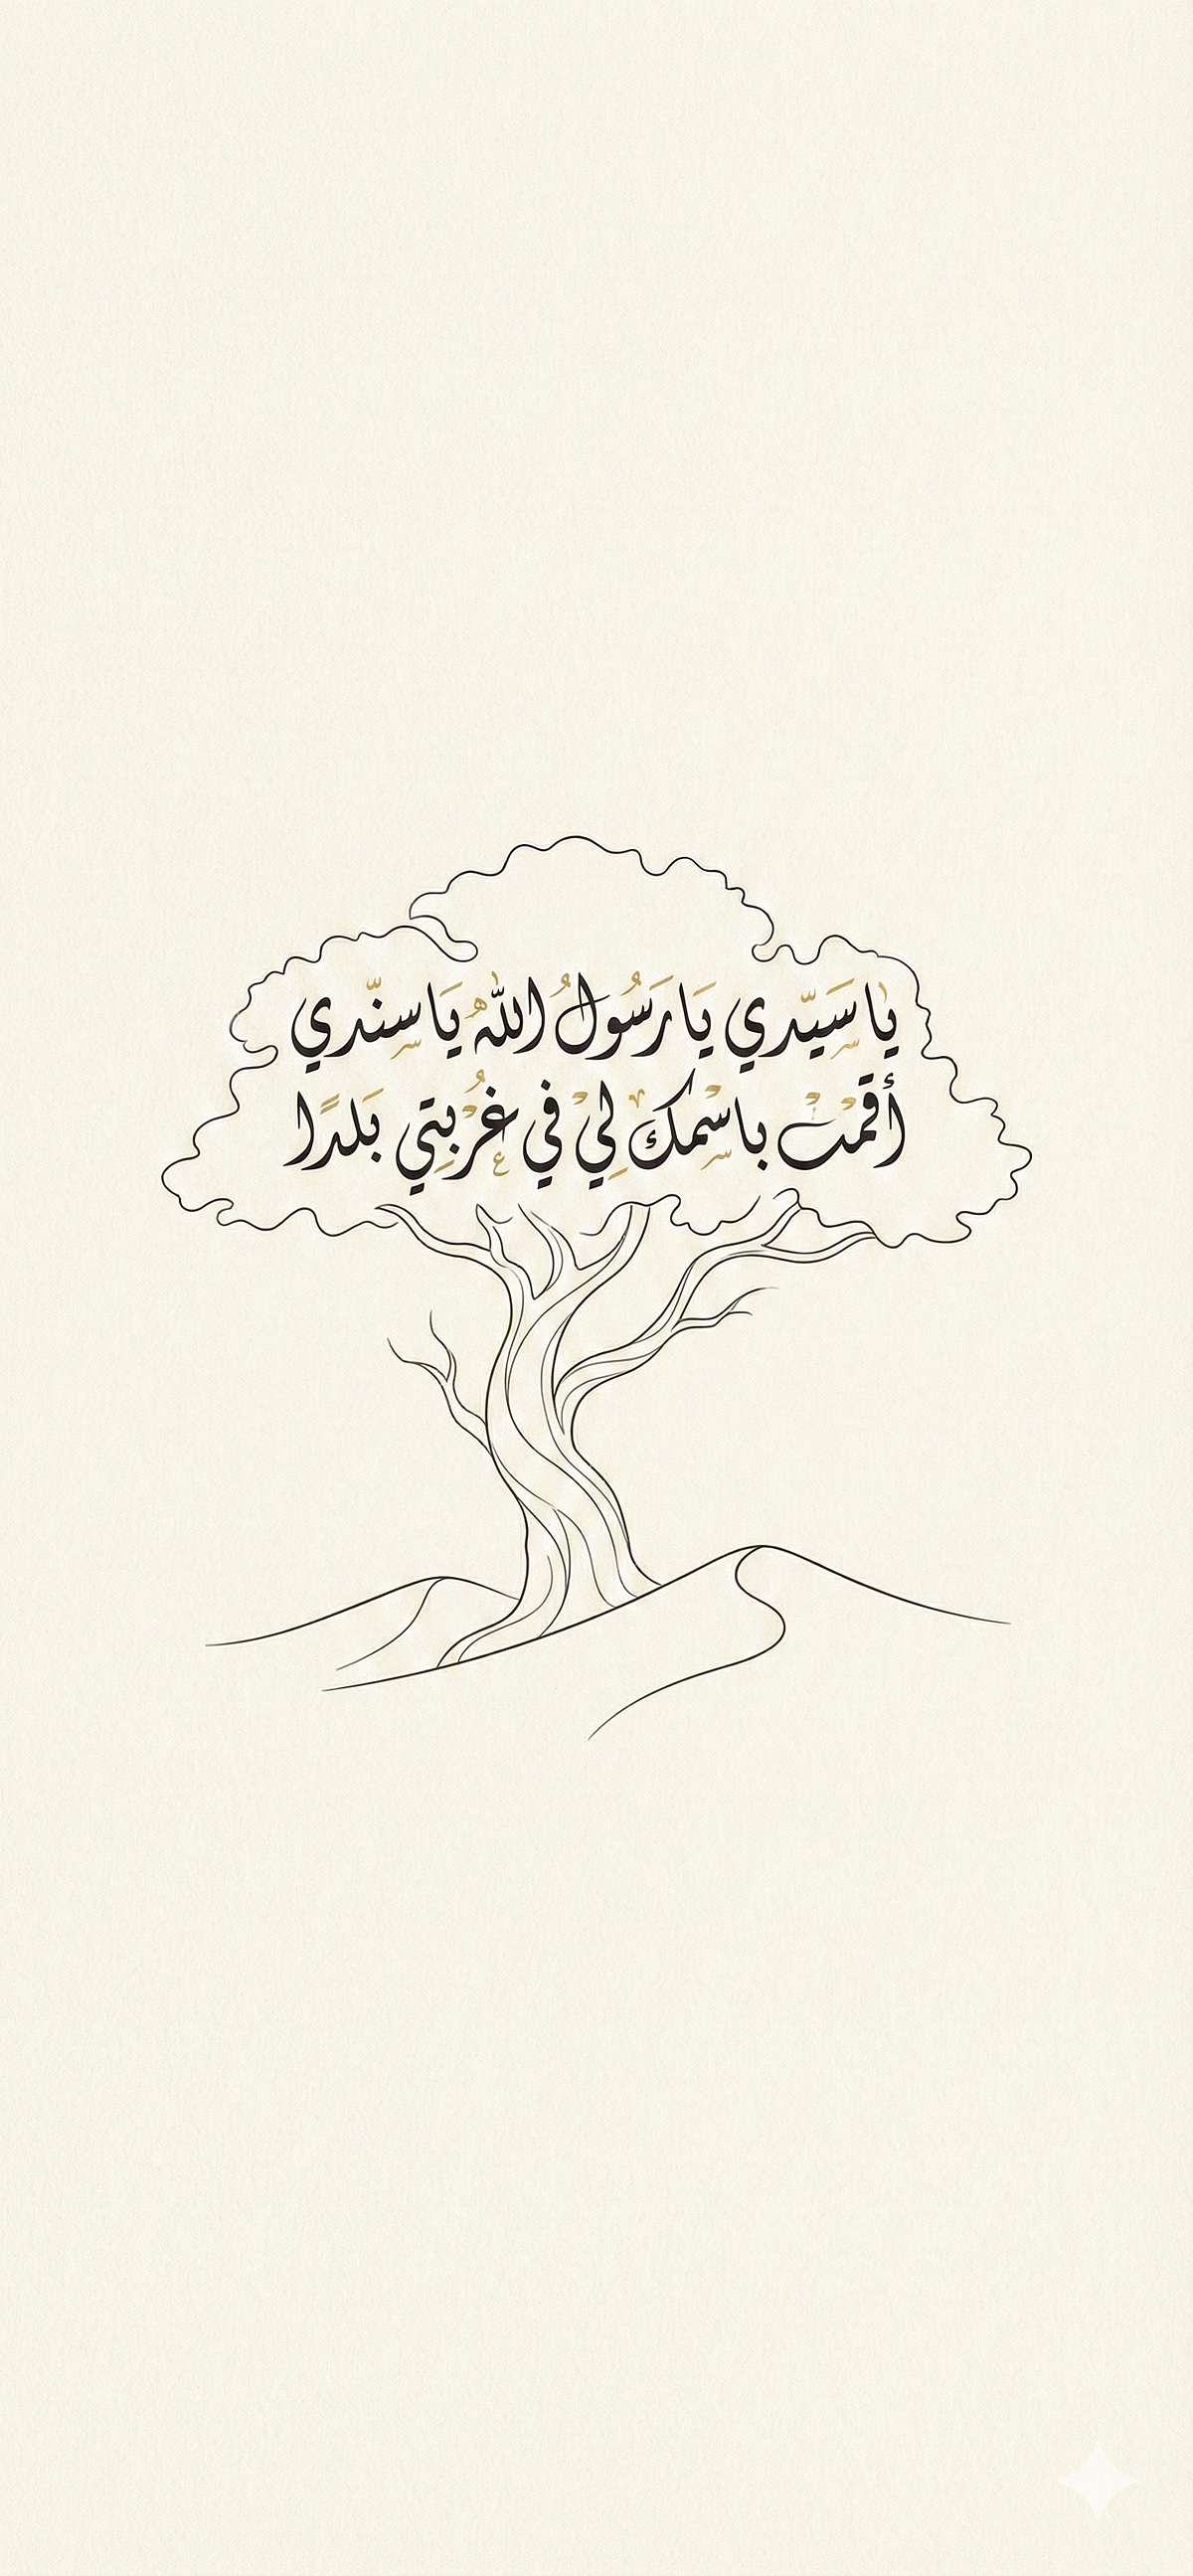 يَا سَيّدي يَا رَسُولُ اللّهُ يَا سنّدي
أقمْتْ باسْمكَ لِيْ في غرُبتِي بَلدًا